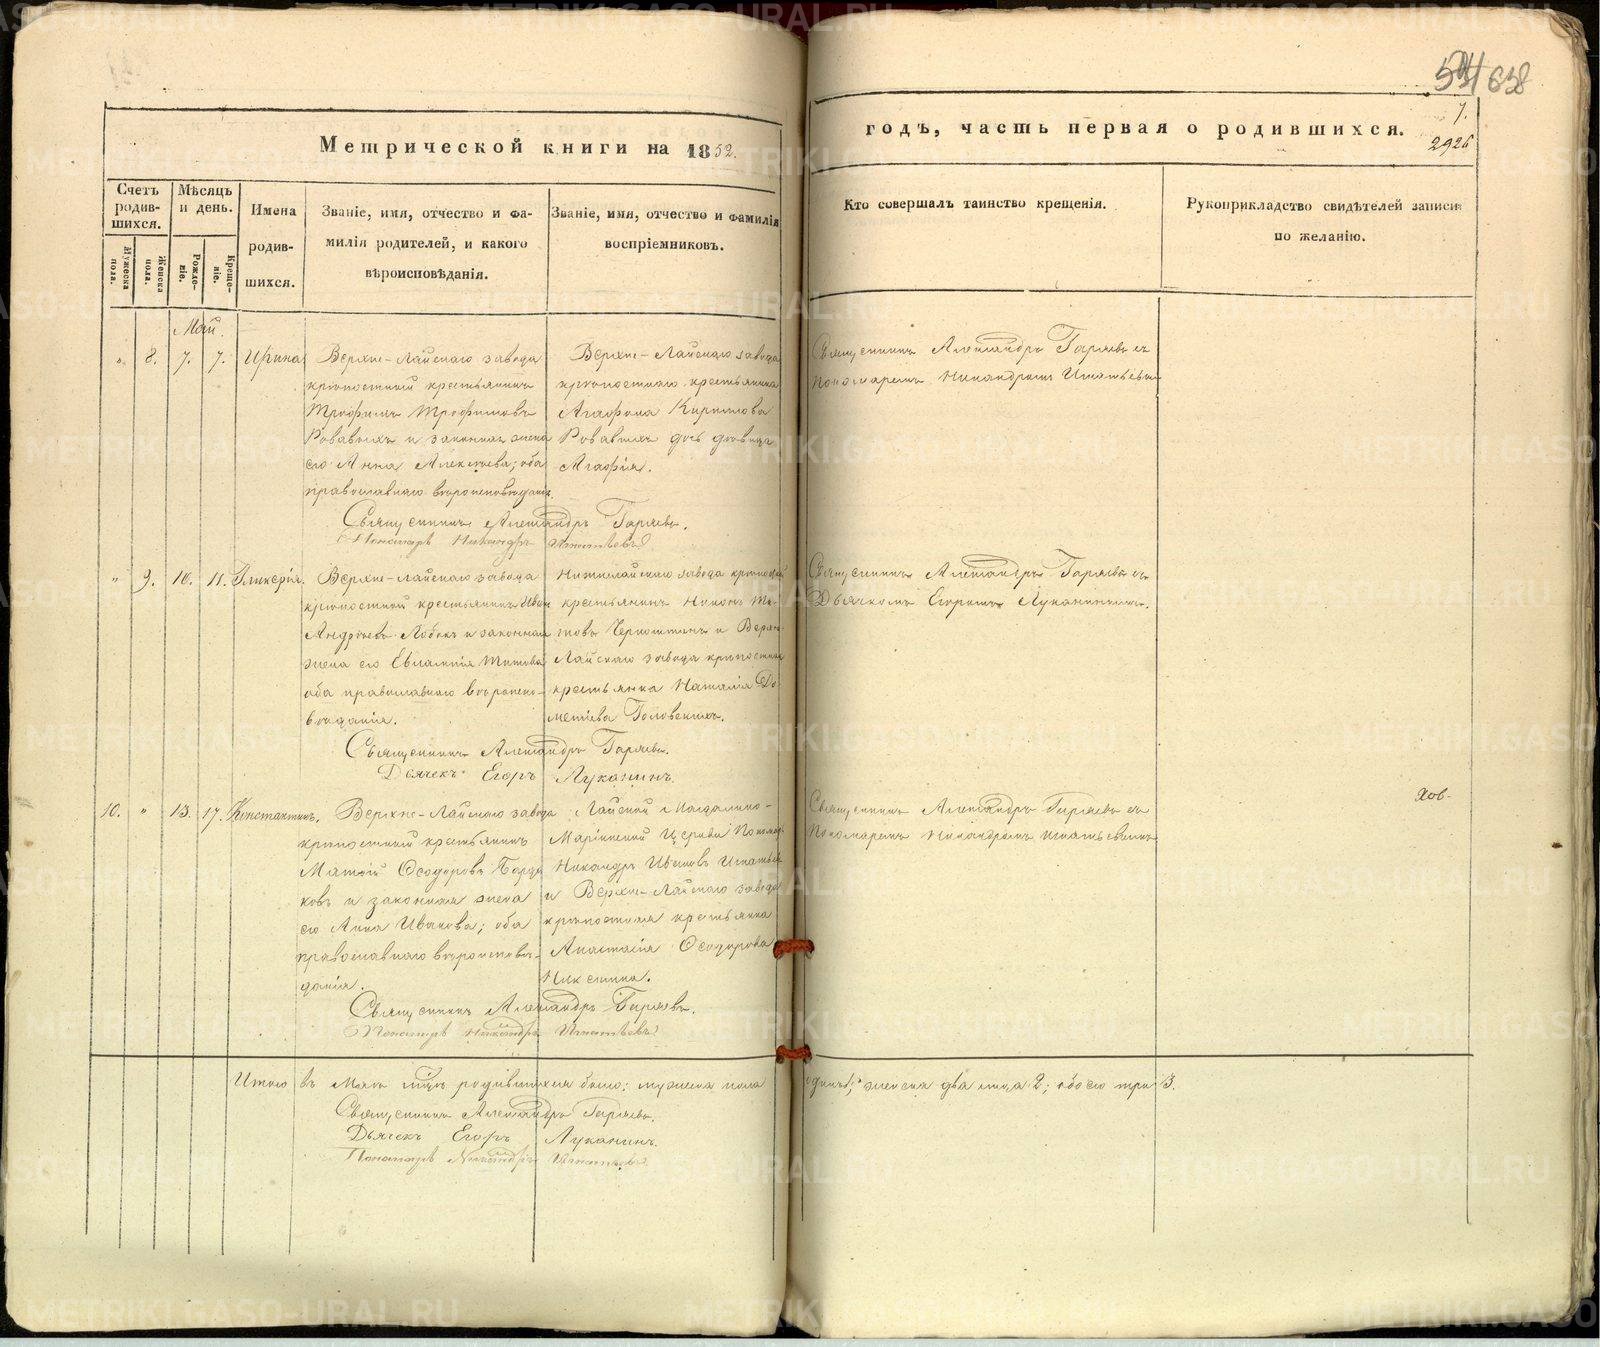 638
7.
2926
Метрической книги на 1852.
годъ, часть первая о родившихся.
Счетъ родив-шихся.
Мѣсяцъ и день.
Имена родив-шихся.
Званіе, имя, отчество и фа-
милія родителей, и какого
вѣроисповѣданія.
Званіе, имя, отчество и фамилія
воспріемниковъ.
Кто совершалъ таинство крещенія.
Рукоприкладство свидѣтелей записи
по желанію.
Мужеска пола.
Женска пола.
Рожде-ніе.
Креще-ніе.
Май.
" 8. 7. 7. Ирина
Верхне-Лайскаго завода
крѣпостный крестьянинъ
Трофимъ Трофимовъ
и законная жена
его Анна Алексѣева; оба
православнаго вѣроисповѣданія.
Верхне-Лайскаго завода
крѣпостнаго крестьянина
Агафона Кирилова
дочь дѣвица
Агафія.
Священникъ Александръ Гаряевъ съ
Пономаремъ Никандромъ Игнатьевымъ
Священникъ Александръ Гаряевъ.
Пономарь Никандръ Игнатьевъ
" 9. 10. 11. Гликерія.
Верхне-Лайскаго завода
крѣпостный крестьянинъ Иван
Андреевъ и законная
жена его Евлампія Титова
оба православнаго вѣроиспо-
вѣданія.
Нижнелайскаго завода
крестьянинъ Никонъ Ти-
товъ и Верхне-
Лайскаго завода крѣпостная
крестьянка Наталія До-
метіева Головскихъ.
Священникъ Александръ Гаряевъ съ
Дьячкомъ Егоромъ Луканинымъ.
Священникъ Александръ Гаряевъ.
Дьячекъ Егоръ Луканинъ.
10. " 13. 17. Константинъ.
Верхне-Лайскаго завода
крѣпостный крестьянинъ
Матѳій Ѳеодоровъ
и законная жена
его Анна Иванова; оба
православнаго вѣроисповѣ-
данія.
Лайской Магдалино-
Маріинской Церкви Понома
Никандръ Ивановъ Игнатьев
и Верхне-Лайскаго завода
крѣпостная крестьянка
Анастасія Ѳеодорова
Священникъ Александръ Гаряевъ съ
Пономаремъ Никандромъ Игнатьевымъ
Хов-
Священникъ Александръ Гаряевъ.
Пономарь Никандръ Игнатьевъ
Итого въ Маѣ м-цѣ родившихся было: мужеска пола одинъ 1; женска два 2; обоего три 3.
Священникъ Александръ Гаряевъ.
Дьячекъ Егоръ Луканинъ.
Пономарь Никандръ Игнатьевъ
METRIKI.GASO-URAL.RU